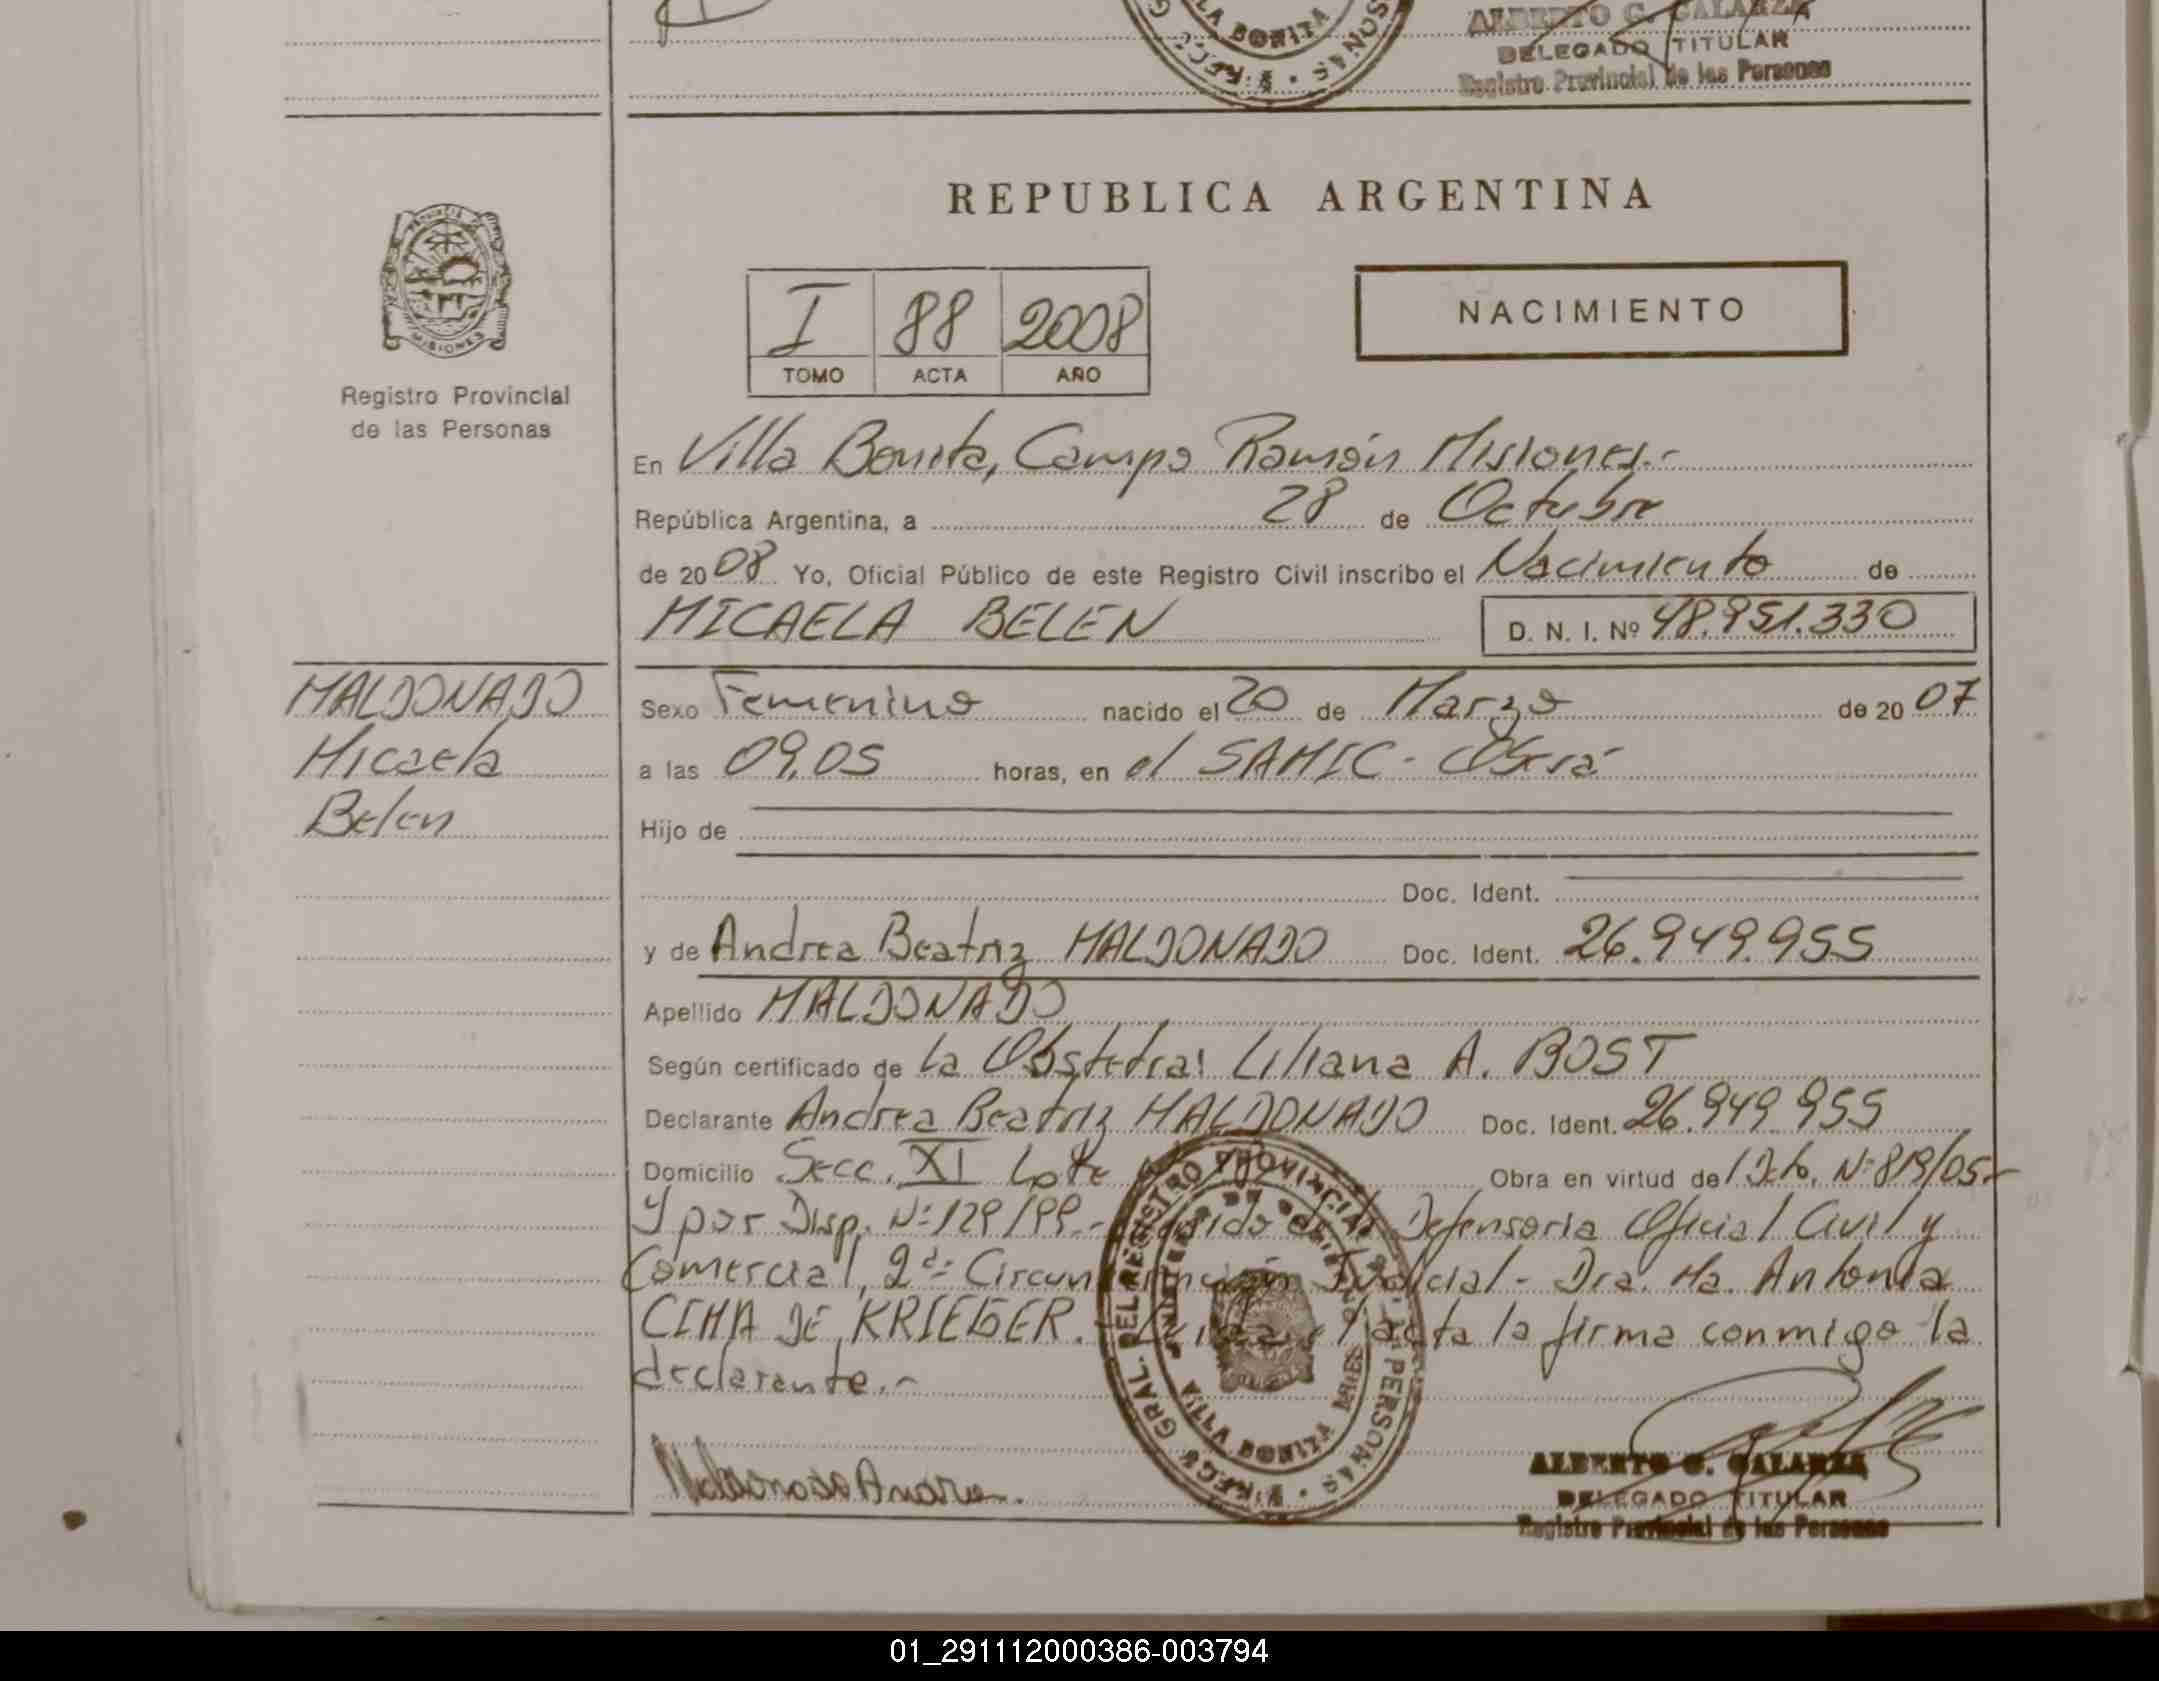 VILLA BONITA
ALBERTO G. GALARZA
DELEGADO TITULAR
Registro Provincial de las Personas
REPUBLICA ARGENTINA
MISIONES
Registro Provincial
de las Personas
I 88 2008
TOMO ACTA AÑO
NACIMIENTO
En Villa Bonita, Campo Ramón Misiones.-
República Argentina, a 28 de Octubre
de 2008 Yo, Oficial Público de este Registro Civil inscribo el Nacimiento de
MICAELA BELEN D. N. I. Nº 48.951.330
MALDONADO
Micaela
Belen
Sexo Femenino nacido el 20 de Marzo de 2007
a las 09,05 horas, en el SAMIC - Oberá
Hijo de
Doc. Ident.
y de Andrea Beatriz MALDONADO Doc. Ident. 26.949.955
Apellido MALDONADO
Según certificado de la Obstetra: Liliana A. BOST
Declarante Andrea Beatriz MALDONADO Doc. Ident. 26.949.955
Domicilio Secc. XI Lote Obra en virtud de/ Dcto. Nº 819/05-
y por Disp. Nº 129/99.- Defensoria Oficial Civil y
Comercial, 2da Circunscripción Judicial - Dra. Ma. Antonia
CIMA DE KRIEGER. acta la firma conmigo la
declarante.-
GRAL. DEL REGISTRO PROVINCIAL DE LAS PERSONAS
MINISTERIO DE GOBIERNO
VILLA BONITA MNES
Maldonado Andrea.
ALBERTO G. GALARZA
DELEGADO TITULAR
Registro Provincial de las Personas
01_291112000386-003794